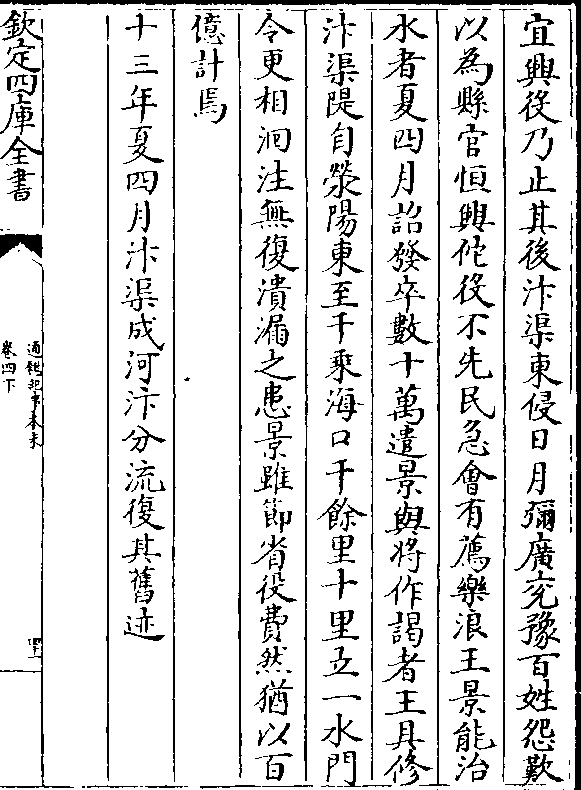 宜興役乃止其後汴渠東侵日月彌廣兗豫百姓怨歎
以為縣官恒興佗役不先民急會有薦樂浪王景能治
水者夏四月詔發卒數十萬遣景與將作謁者王吳修
汴渠隄自滎陽東至千乘海口千餘里十里立一水門
令更相洄注無復潰漏之患景雖節省役費然猶以百
億計焉
十三年夏四月汴渠成河汴分流復其舊迹
欽定四庫全書
通鑑紀事本末
卷四下